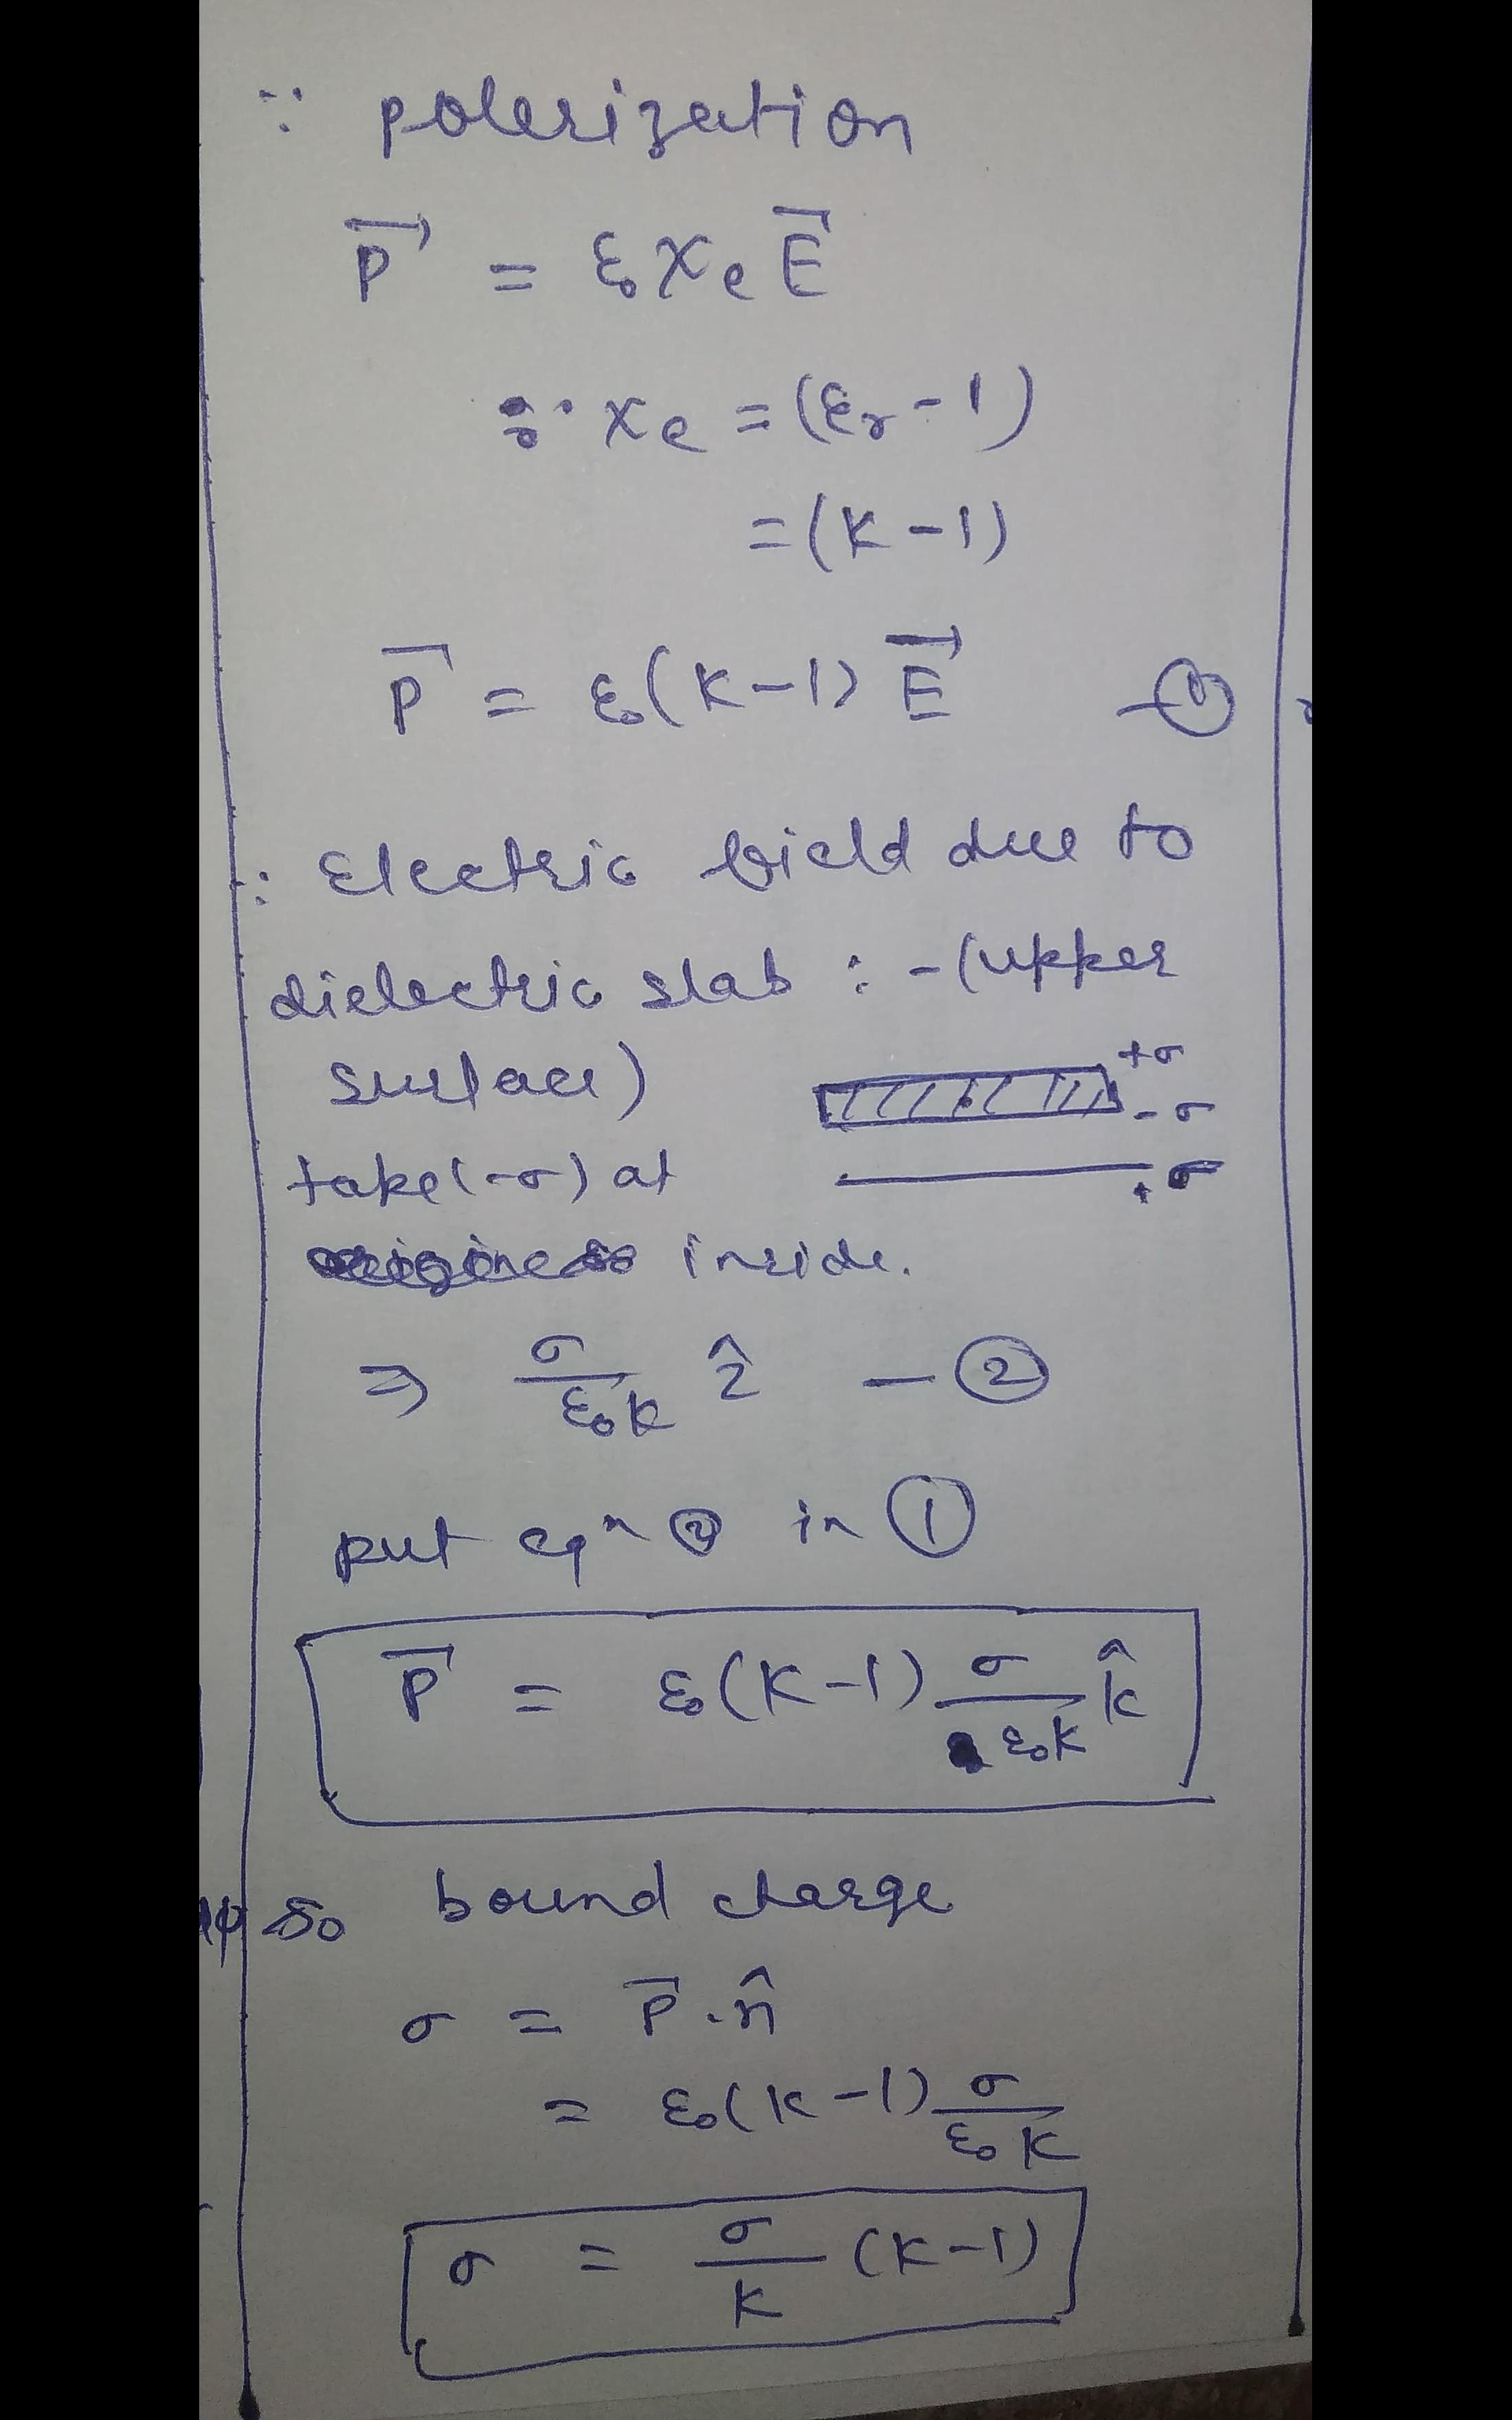 ∵ polerization
P⃗ = ε₀ χₑ E⃗
∵ χₑ = (εᵣ - 1)
= (K - 1)
P⃗ = ε₀(K-1) E⃗ - ①
∵ Electric field due to
dielectric slab : - (upper
surface)
+σ
-σ
take (-σ) at
+σ
inside.
⇒ σ/ε₀K ẑ - ②
put eqⁿ ② in ①
P⃗ = ε₀(K-1) σ/ε₀K k̂
so bound charge
σ = P⃗.n̂
= ε₀(K-1) σ/ε₀K
σ = σ/K (K-1)